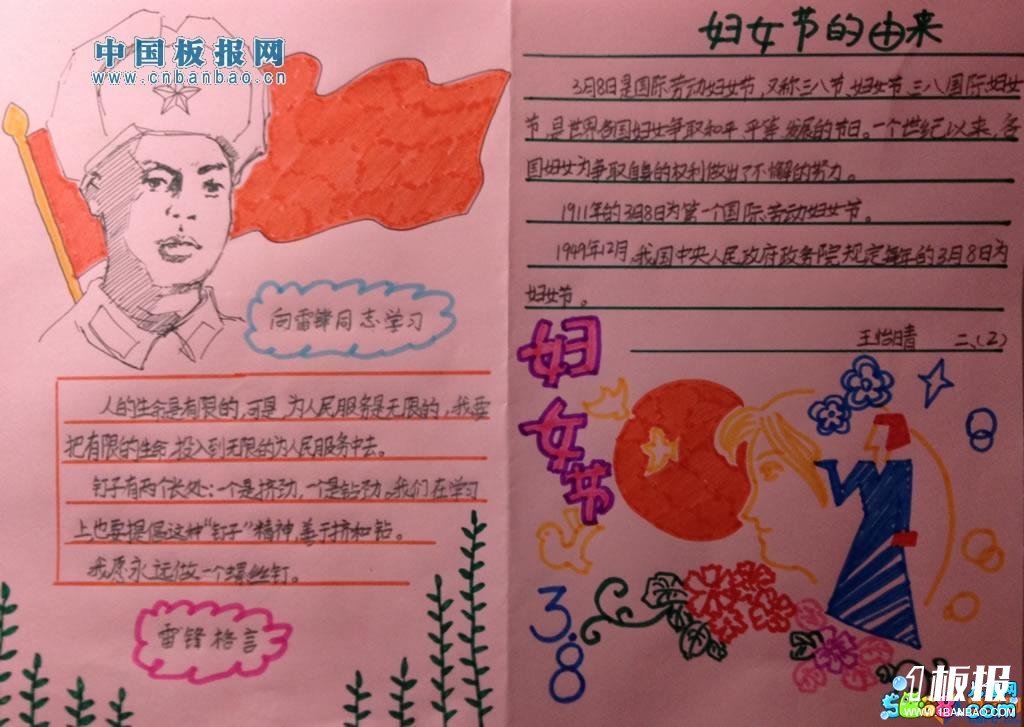 中国板报网
www.cnbanbao.cn
向雷锋同志学习
人的生命是有限的,可是,为人民服务是无限的,我要
把有限的生命,投入到无限的为人民服务中去。
钉子有两个长处:一个是挤劲,一个是钻劲。我们在学习
上也要提倡这种“钉子”精神,善于挤和钻。
我愿永远做一个螺丝钉。
雷锋格言
妇女节的由来
3月8日是国际劳动妇女节,又称三八节、妇女节、三八国际妇女
节,是世界各国妇女争取和平、平等、发展的节日。一个世纪以来,各
国妇女为争取自身的权利做出了不懈的努力。
1911年的3月8日为第一个国际劳动妇女节。
1949年12月,我国中央人民政府政务院规定每年的3月8日为
妇女节。
王怡晴 二、(2)
妇女节
3.8
1板报
WWW.1BANBAO.COM